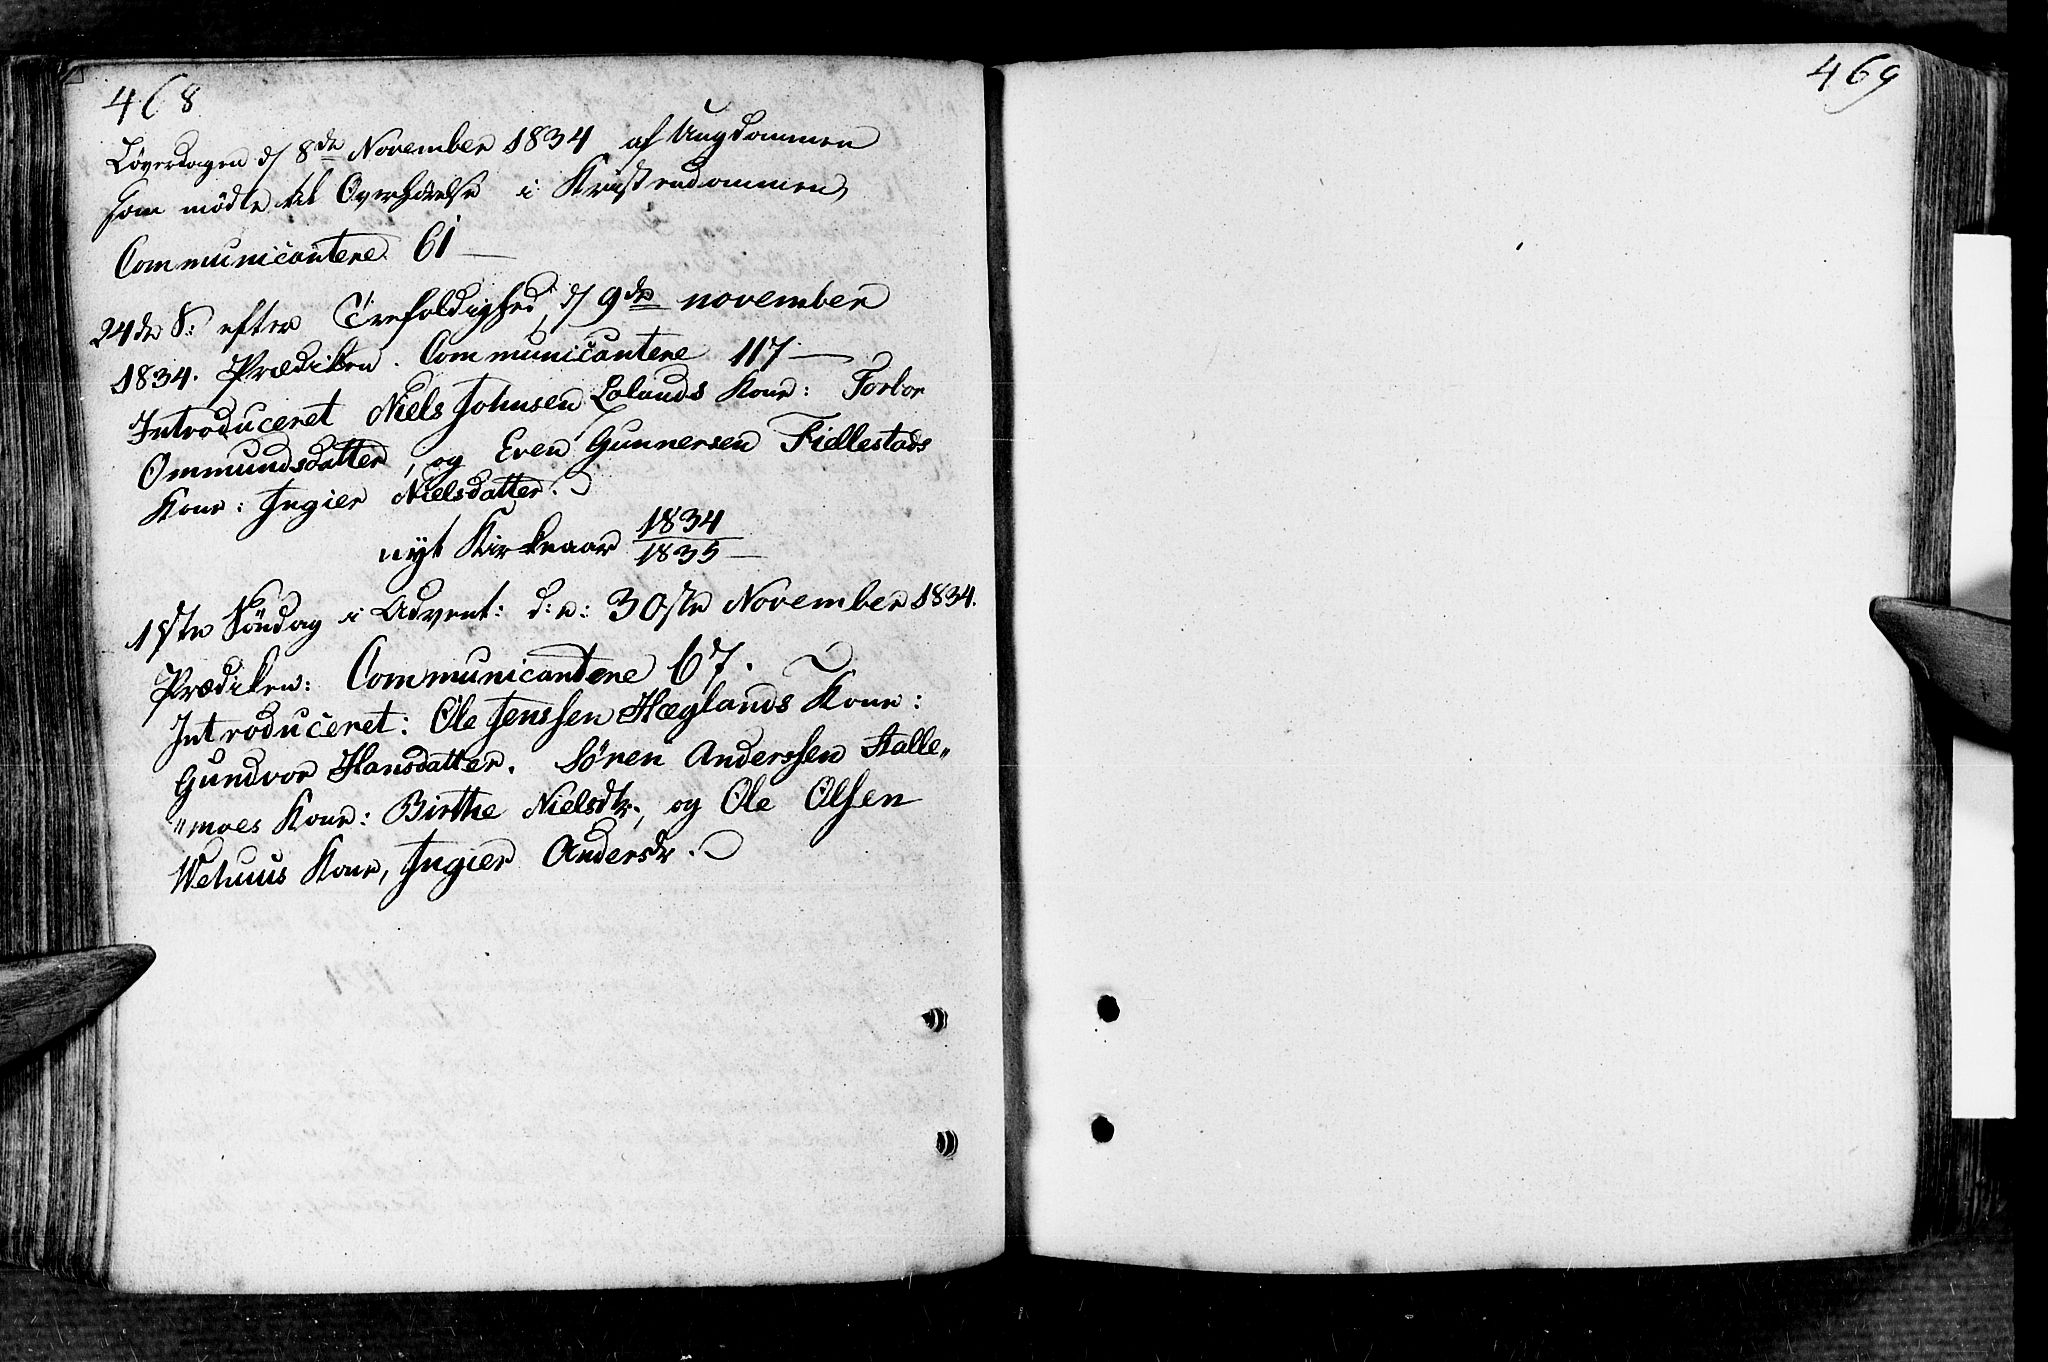 468
Løverdagen d/ 8de November 1834 af Ungdommen
som mödte til Overhörelse i Kristendommen,
Communicantere 61 —
24de S: efter Trefoldighed, d/ 9de november
1834. Prædiken. Communicantere 117 —
Introduceret Niels Johnsen Lolands Kone: Torbor
Ommundsdatter, og Even Gunnersen Fiellestads
Kone: Ingier Nielsdatter.
nyt Kirkeaar 1834/1835 —
1ste Söndag i Advent: d:e: 30ste November 1834.
Prædiken: Communicantere 67.
Introduceret: Ole Jenssen Hæglands Kone:
Gundvor Hansdatter. Sören Anderssen Stalle„
„moes Kone: Birthe Nielsdtr., og Ole Olsen
Wehuus Kone, Ingier Andersdr.
469